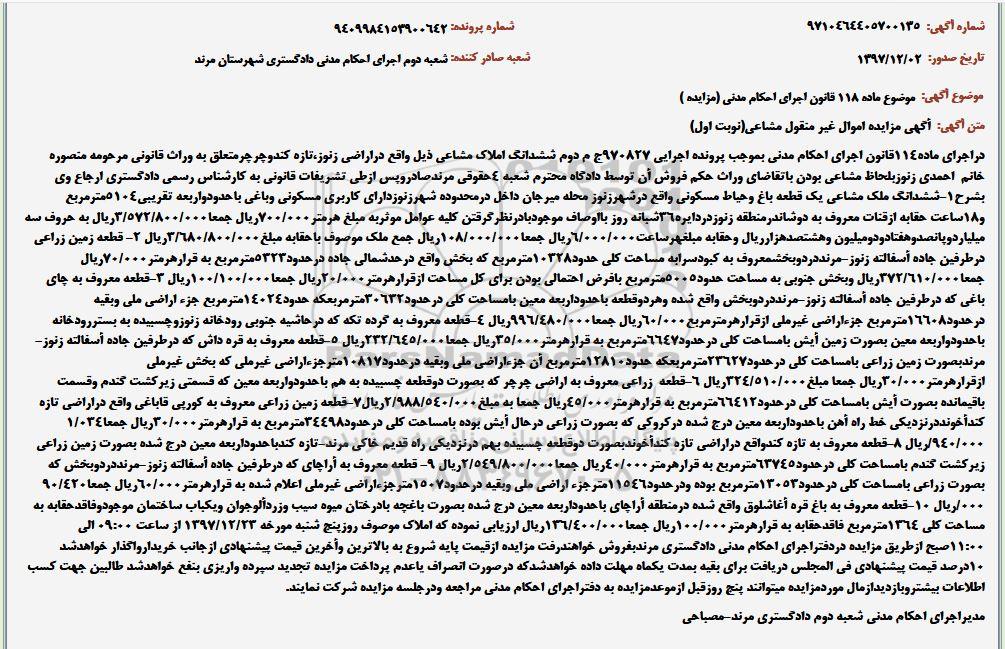 شماره آگهی: ۹۷۱۰۴۶۴۴۰۵۷۰۰۱۳۵ شماره پرونده: ۹۴۰۹۹۸۴۱۵۳۹۰۰۶۴۲
تاریخ صدور: ۱۳۹۷/۱۲/۰۲ شعبه صادر کننده: شعبه دوم اجرای احکام مدنی دادگستری شهرستان مرند
موضوع آگهی: موضوع ماده ۱۱۸ قانون اجرای احکام مدنی (مزایده )
متن آگهی: آگهی مزایده اموال غیر منقول مشاعی(نوبت اول)
دراجرای ماده۱۱٤قانون اجرای احکام مدنی بموجب پرونده اجرایی ۹۷۰۸۲۷ج م دوم ششدانگ املاک مشاعی ذیل واقع دراراضی زنوزءتازه کندوچرچرمتعلق به وراث قانونی مرحومه منصوره
خانم احمدی زنوزبلحاظ مشاعی بودن باتقاضای وراث حکم فروش آن توسط دادگاه محترم شعبه ٤حقوقی مرندصادروپس ازطی تشریفات قانونی به کارشناس رسمی دادگستری ارجاع وی
بشرح۱-ششدانگ ملک مشاعی یک قطعه باغ وحیاط مسکونی واقع درشهرزنوز محله میرجان داخل درمحدوده شهرزنوزدارای کاربری مسکونی وباغی باحدوداربعه تقریبی۵۱۰٤مترمربع
و۱۸ساعت حقابه ازقنات معروف به دوشاندرمنطقه زنوزدردایره۳۶شبانه روز بااوصاف موجودبادرنظرگرفتن کلیه عوامل موثربه مبلغ هرمتر۷۰۰/۰۰۰ریال جمعا۳/۵۷۲/۸۰۰/۰۰۰ریال به حروف سه
میلیاردوپانصدوهفتادودومیلیون وهشتصدهزارریال وحقابه مبلغهرساعت۶/۰۰۰/۰۰۰ریال جمعا۱۰۸/۰۰۰/۰۰۰ریال جمع ملک موصوف باحقابه مبلغ۳/۶۸۰/۸۰۰/۰۰۰ریال ۲- قطعه زمین زراعی
درطرفین جاده آسفالته زنوز-مرنددردوبخشمعروف به کبودسرابه مساحت کلی حدود۱۰۳۲۸مترمربع که بخش واقع درحدشمالی جاده درحدود۵۳۲۳مترمربع به قرارهرمتر۷۰/۰۰۰ریال
جمعا۳۷۲/۶۱۰/۰۰۰ریال وبخش جنوبی به مساحت حدود۵۰۰۵مترمربع بافرض احتمالی بودن برای کل مساحت ازقرارهرمتر۲۰/۰۰۰ریال جمعا۱۰۰/۱۰۰/۰۰۰ریال ۳-قطعه معروف به چای
باغی که درطرفین جاده آسفالته زنوز-مرنددردوبخش واقع شده وهردوقطعه باحدوداربعه معین بامساحت کلی درحدود۳۰۶۳۲مترمربعکه حدود۱٤۰۲٤متر مربع جزء اراضی ملی وبقیه
درحدود۱۶۶۰۸مترمربع جزءاراضی غیرملی ازقرارهرمترمربع۶۰/۰۰۰ریال جمعا۹۹۶/٤۸۰/۰۰۰ریال ٤-قطعه معروف به گرده تکه که درحاشیه جنوبی رودخانه زنوزوچسبیده به بستررودخانه
باحدوداربعه معین بصورت زمین آیش بامساحت کلی درحدود۶۶٤۷مترمربع به قرارهرمتر۳۵/۰۰۰ریال جمعا۲۳۲/۶٤۵/۰۰۰ریال ۵-قطعه معروف به قره داش که درطرفین جاده آسفالته زنوز-
مرندبصورت زمین زراعی بامساحت کلی درحدود۲۳۶۲۷مترمربعکه حدود۱۲۸۱۰مترمربع آن جزءاراضی ملی وبقیه درحدود۱۰۸۱۷مترجزءاراضی غیرملی که بخش غیرملی
ازقرارهرمتر۳۰/۰۰۰ریال جمعا مبلغ۳۲٤/۵۱۰/۰۰۰ریال ۶-قطعه زراعی معروف به اراضی چرچر که بصورت دوقطعه چسبیده به هم باحدوداربعه معین که قسمتی زیرکشت گندم وقسمت
باقیمانده بصورت آیش بامساحت کلی درحدود۶۶٤۱۲مترمربع به قرارهرمتر٤۵/۰۰۰ریال جمعا به مبلغ۲/۹۸۸/۵٤۰/۰۰۰ریال۷-قطعه زمین زراعی معروف به کورپی قاباغی واقع دراراضی تازه
کندآخونددرنزدیکی خط راه آهن باحدوداربعه معین درج شده درکروکی که بصورت زراعی درحال آیش بوده بامساحت کلی درحدود۳٤٤۹۸مترمربع به قرارهرمتر۳۰/۰۰۰ریال جمعا۱/۰۳٤
/۹٤۰/۰۰۰ریال ۸-قطعه معروف به تازه کندواقع دراراضی تازه کندآخوندبصورت دوقطعه چسبیده بهم درنزدیکی راه قدیم خاکی مرند-تازه کندباحدوداربعه معین درج شده بصورت زمین زراعی
زیرکشت گندم بامساحت کلی درحدود۶۳۷٤۵مترمربع به قرارهرمتر٤۰/۰۰۰ریال جمعا۲/۵٤۹/۸۰۰/۰۰۰ریال ۹- قطعه معروف به آراچای که درطرفین جاده آسفالته زنوز-مرنددردوبخش که
بصورت زراعی بامساحت کلی درحدود۱۳۰۵۳مترمربع بوده ودرحدود۱۱۵٤۶مترجزء اراضی ملی وبقیه درحدود۱۵۰۷مترجزءاراضی غیرملی اعلام شده به قرارهرمتر۶۰/۰۰۰ریال جمعا۹۰/٤۲۰
/۰۰۰ریال ۱۰-قطعه معروف به باغ قره آغاشلوق واقع شده درمنطقه آراچای باحدوداربعه معین درج شده بصورت باغچه بادرختان میوه سیب وزردآلوجوان ویکباب ساختمان موجودوفاقدحقابه به
مساحت کلی ۱۳۶٤مترمربع فاقدحقابه به قرارهرمتر۱۰۰/۰۰۰ریال جمعا۱۳۶/٤۰۰/۰۰۰ریال ارزیابی نموده که املاک موصوف روزپنج شنبه مورخه ۱۳۹۷/۱۲/۲۳ از ساعت ۰۹:۰۰ الی
۱۱:۰۰صبح ازطریق مزایده دردفتراجرای احکام مدنی دادگستری مرندبفروش خواهدرفت مزایده ازقیمت پایه شروع به بالاترین وآخرین قیمت پیشنهادی ازجانب خریدارواگذار خواهدشد
۱۰درصد قیمت پیشنهادی فی المجلس دریافت برای بقیه بمدت یکماه مهلت داده خواهدشدکه درصورت انصراف یاعدم پرداخت مزایده تجدید سپرده واریزی بنفع خواهدشد طالبین جهت کسب
اطلاعات بیشتروبازدیدازمال موردمزایده میتوانند پنج روزقبل ازموعدمزایده به دفتراجرای احکام مدنی مراجعه ودرجلسه مزایده شرکت نمایند.
مدیراجرای احکام مدنی شعبه دوم دادگستری مرند-مصباحی
ParsNamadData